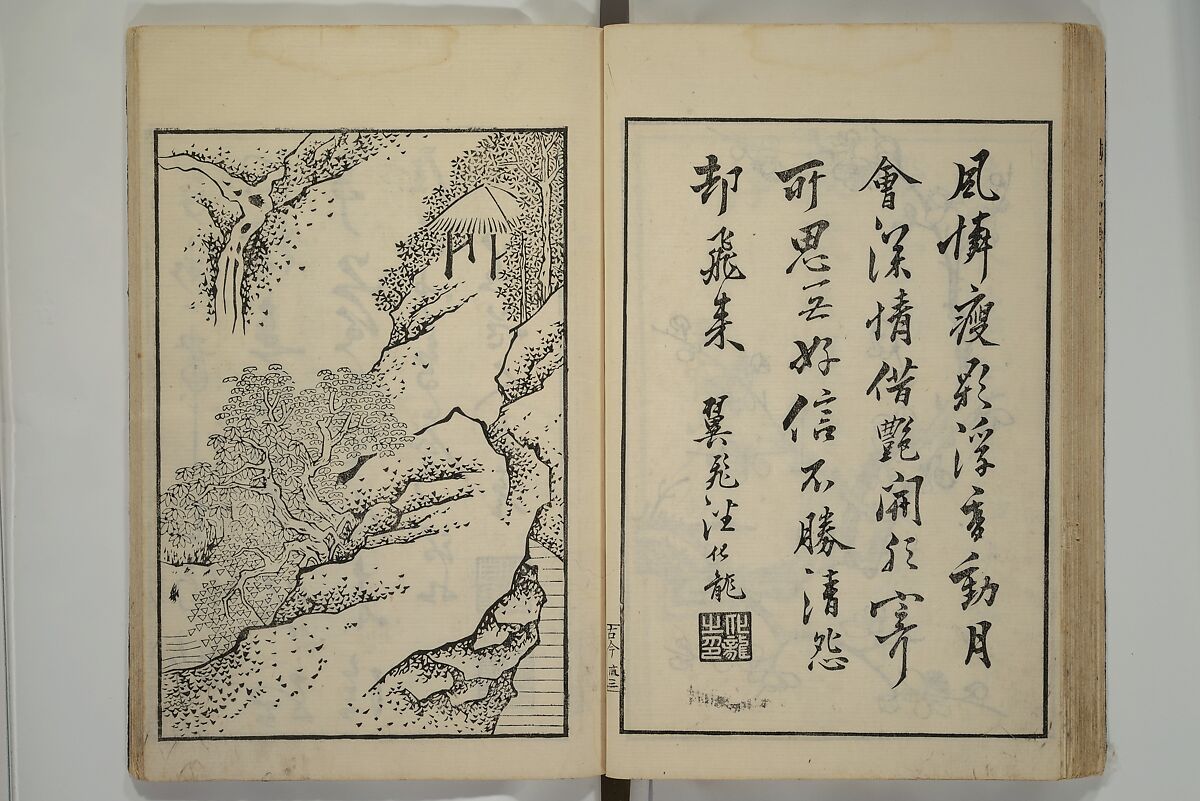 風憐瘦影浮香動月
會深情借艷開欲寄
所思無好信不勝清怨
却飛來　翼飛汪化龍
化龍之印
古今